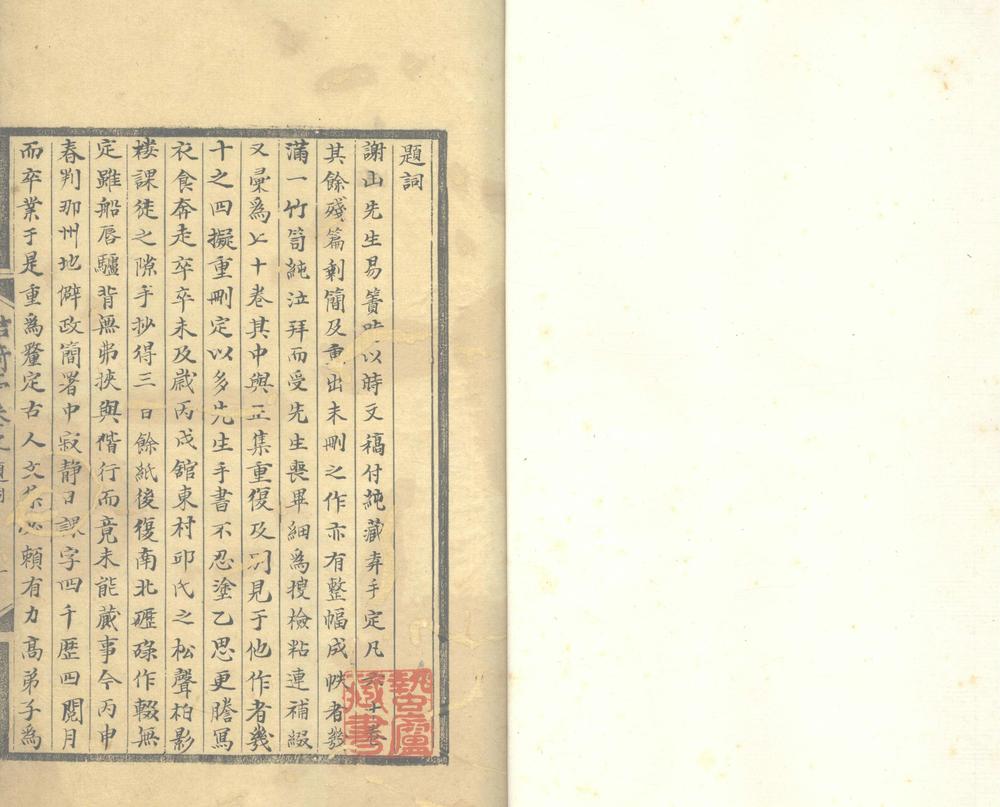 題詞
謝山先生易簀以時文稿付純藏弆手定凡六十卷
其餘殘篇剩簡及重出未刪之作亦有整幅成帙者幾
滿一竹笥純泣拜而受先生喪畢細爲搜檢粘連補綴
又彚爲十卷其中與正集重復及別見于他作者幾
十之四擬重刪定以多先生手書不忍塗乙思更謄寫
衣食奔走卒卒未及歲丙戌館東村邱氏之松聲柏影
樓課徒之隙手抄得三百餘紙後復南北碌作輟無
定雖船唇驢背無弗挾與偕行而竟未能蕆事今丙申
春判那州地僻政簡署中寂静日課字四千歷四閱月
而卒業于是重爲釐定古人文賴有力高弟子爲
蟄廬藏書